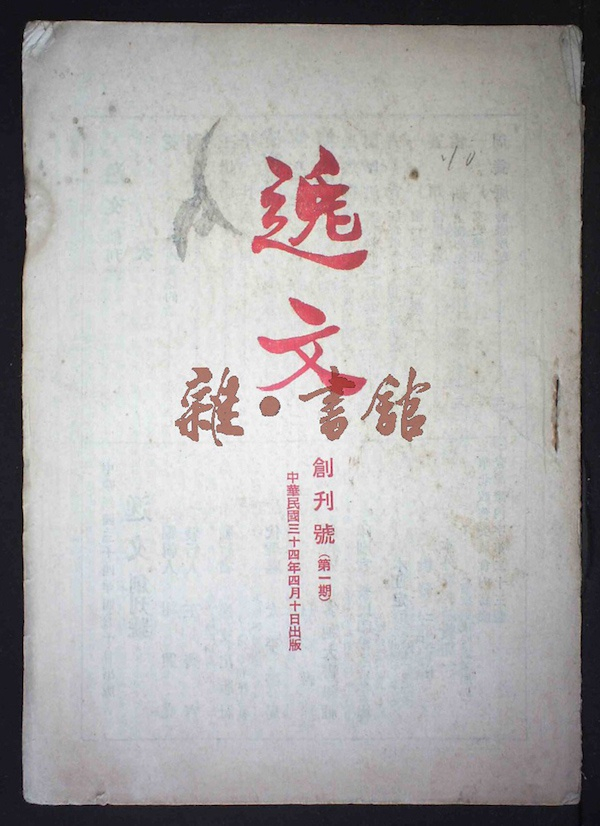 逸文
雜·書館
創刊號(第一期)
中華民國三十四年四月十日出版